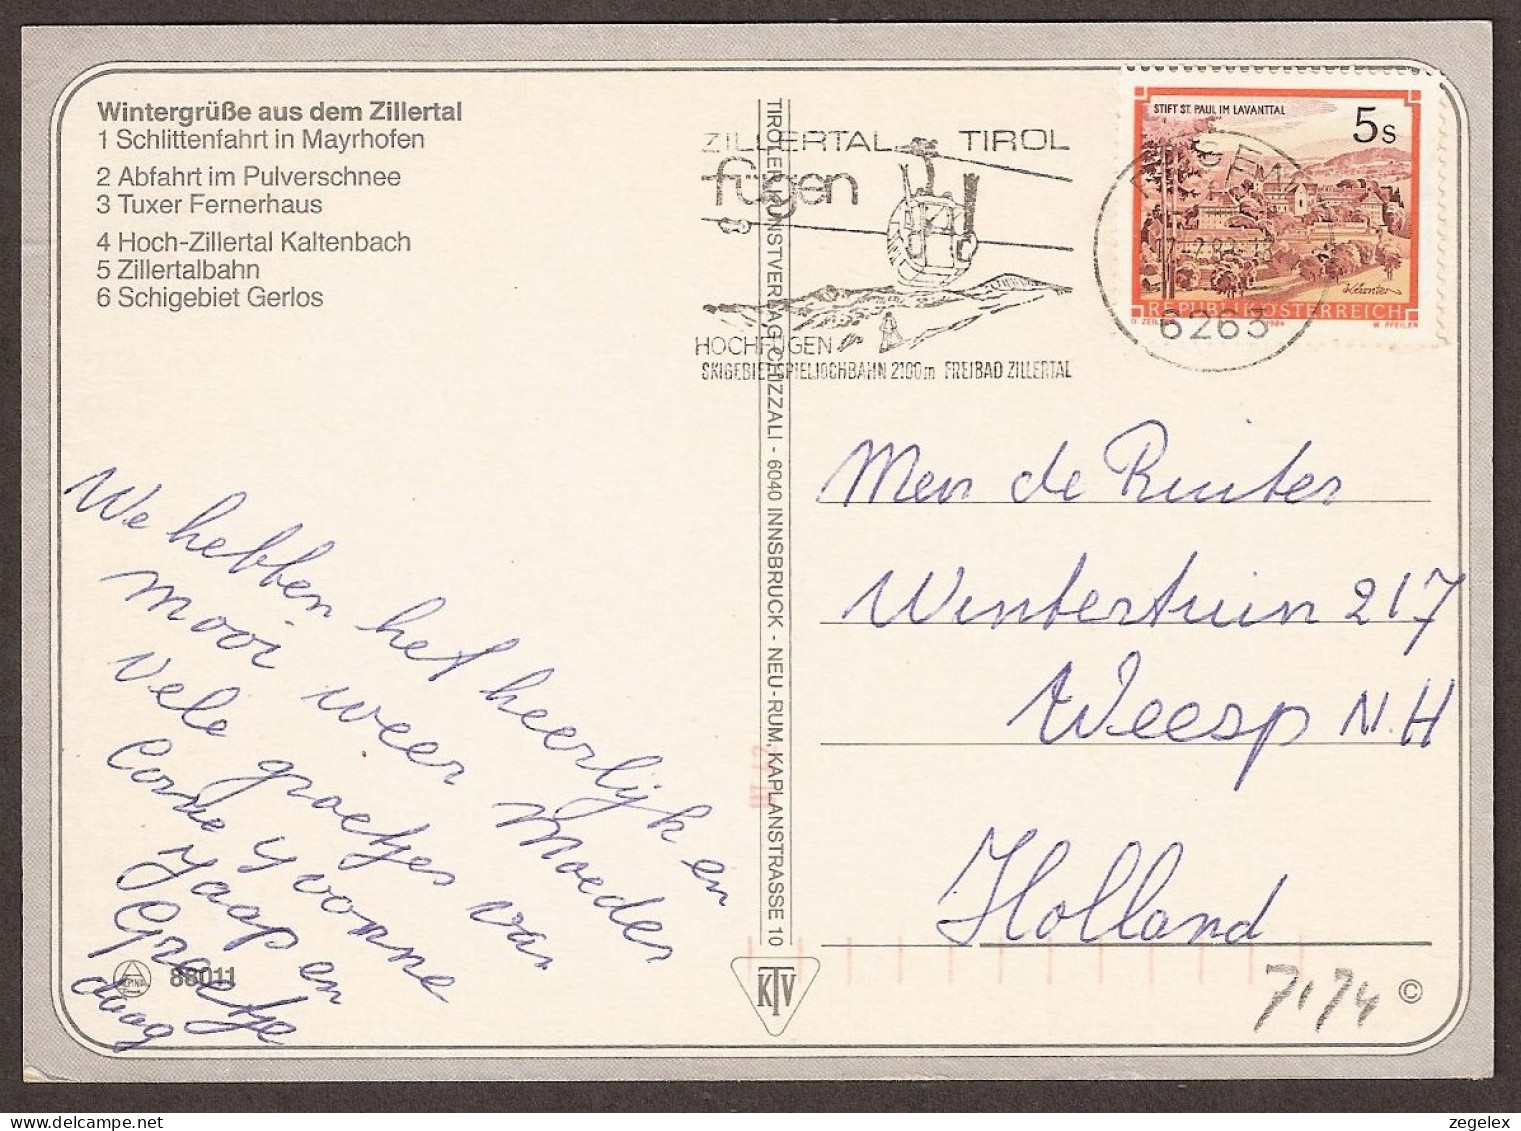 Wintergrüße aus dem Zillertal
1 Schlittenfahrt in Mayrhofen
2 Abfahrt im Pulverschnee
3 Tuxer Fernerhaus
4 Hoch-Zillertal Kaltenbach
5 Zillertalbahn
6 Schigebiet Gerlos
ZILLERTAL TIROL
fügen
HOCHFÜGEN
SKIGEBIET SPIELJOCHBAHN 2100m FREIBAD ZILLERTAL
6263
STIFT ST. PAUL IM LAVANTTAL
5 S
REPUBLIK ÖSTERREICH
W. PFEILER
TIROLER KUNSTVERLAG CHIZZALI - 6040 INNSBRUCK - NEU-RUM, KAPLANSTRASSE 10
We hebben het heerlijk en
mooi weer Moeder
Vele groetjes van
Corrie Yvonne
Jaap en
Greetje
daag
Mev de Ruiter
Wintertuin 217
Weesp N.H
Holland
88011
KTV
7174
©
zegelex